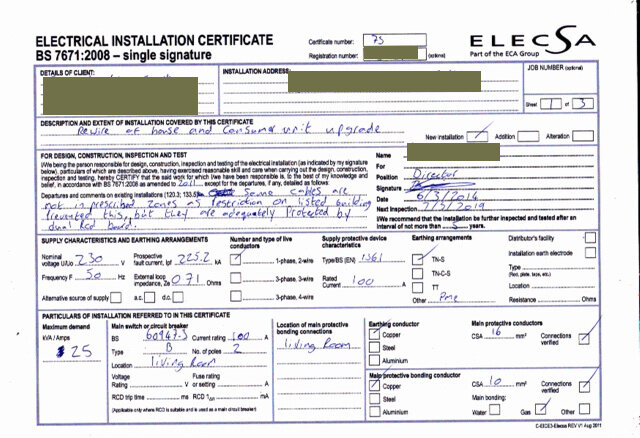 ELECTRICAL INSTALLATION CERTIFICATE
BS 7671:2008 – single signature
Certificate number: 75
Registration number: (optional)
ELECSA
Part of the ECA Group
DETAILS OF CLIENT:
INSTALLATION ADDRESS:
JOB NUMBER (optional)
Sheet 1 of 3
DESCRIPTION AND EXTENT OF INSTALLATION COVERED BY THIS CERTIFICATE
Rewire of house and consumer unit upgrade
New installation Addition Alteration
FOR DESIGN, CONSTRUCTION, INSPECTION AND TEST
I/We being the person responsible for design, construction, inspection and testing of the electrical installation (as indicated by my signature
below), particulars of which are described above, having exercised reasonable skill and care when carrying out the design, construction,
inspection and testing, hereby CERTIFY that the said work for which I/we have been responsible is to the best of my knowledge and
belief, in accordance with BS 7671:2008 as amended to 2011 except for the departures, if any, detailed as follows:
Departures and comments on existing installations (120.3; 133.5) Some cables are
not in prescribed zones as restriction on listed building
prevented this, but they are adequately protected by
dual Rcd board.
Name
For
Position Director
Signature
Date 6/3/2014
Next Inspection 7/3/2019
I/We recommend that the installation be further inspected and tested after an
Interval of not more than 5 years.
SUPPLY CHARACTERISTICS AND EARTHING ARRANGEMENTS
Nominal voltage U/Uo 230 V
Prospective fault current, Ipf 225.2 kA
Frequency F 50 Hz
External loop impedance, Ze 0.71 Ohms
Alternative source of supply a.c. d.c.
Number and type of live conductors
1-phase, 2-wire
3-phase, 3-wire
3-phase, 4-wire
Supply protective device characteristics
Type/BS (EN) 1361
Rated Current 100 A
Earthing arrangements
TN-S
TN-C-S
TT
Other Pme
Distributor's facility
Installation earth electrode
Type
(Rod, plate, tape, etc.)
Location
Resistance Ohms
PARTICULARS OF INSTALLATION REFERRED TO IN THIS CERTIFICATE
Maximum demand
kVA / Amps
25
Main switch or circuit breaker
BS 60947-3 Current rating 100 A
Type B No. of poles 2
Location living Room
Voltage Rating V Fuse rating or setting A
RCD trip time ms RCD IΔn mA
(Applicable only where RCD is suitable and is used as a main circuit breaker)
Location of main protective bonding connections
living Room
Earthing conductor
Copper
Steel
Aluminium
Main protective conductors
CSA 16 mm² Connections verified
Main protective bonding conductor
Copper
Steel
Aluminium
CSA 10 mm² Connections verified
Main bonding:
Water Gas Other